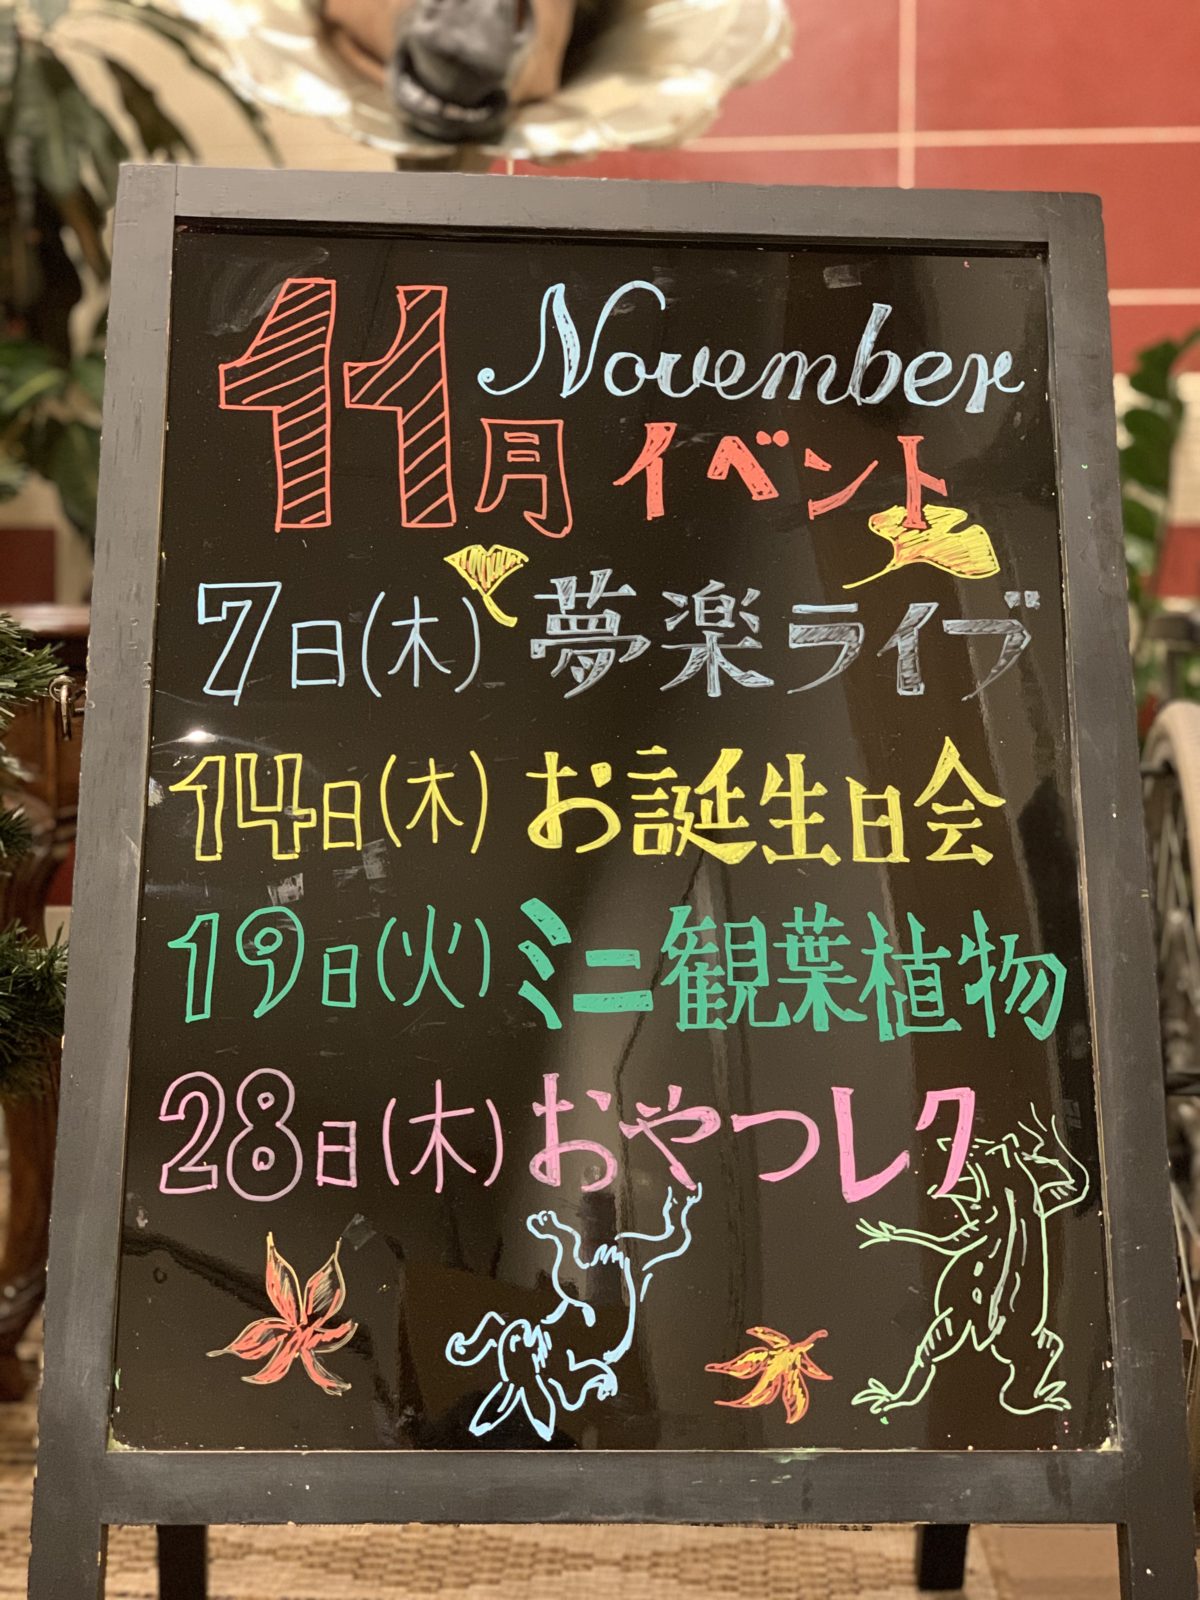 11月 November
イベント
7日(木) 夢楽ライブ
14日(木) お誕生日会
19日(火) ミニ観葉植物
28日(木) おやつレク